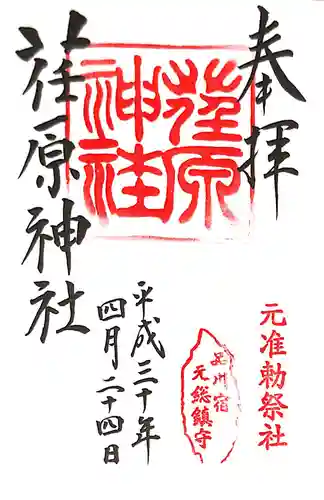 奉拝
元准勅祭社
荏原神社
品川宿
元総鎮守
荏原神社
平成三十年
四月二十四日